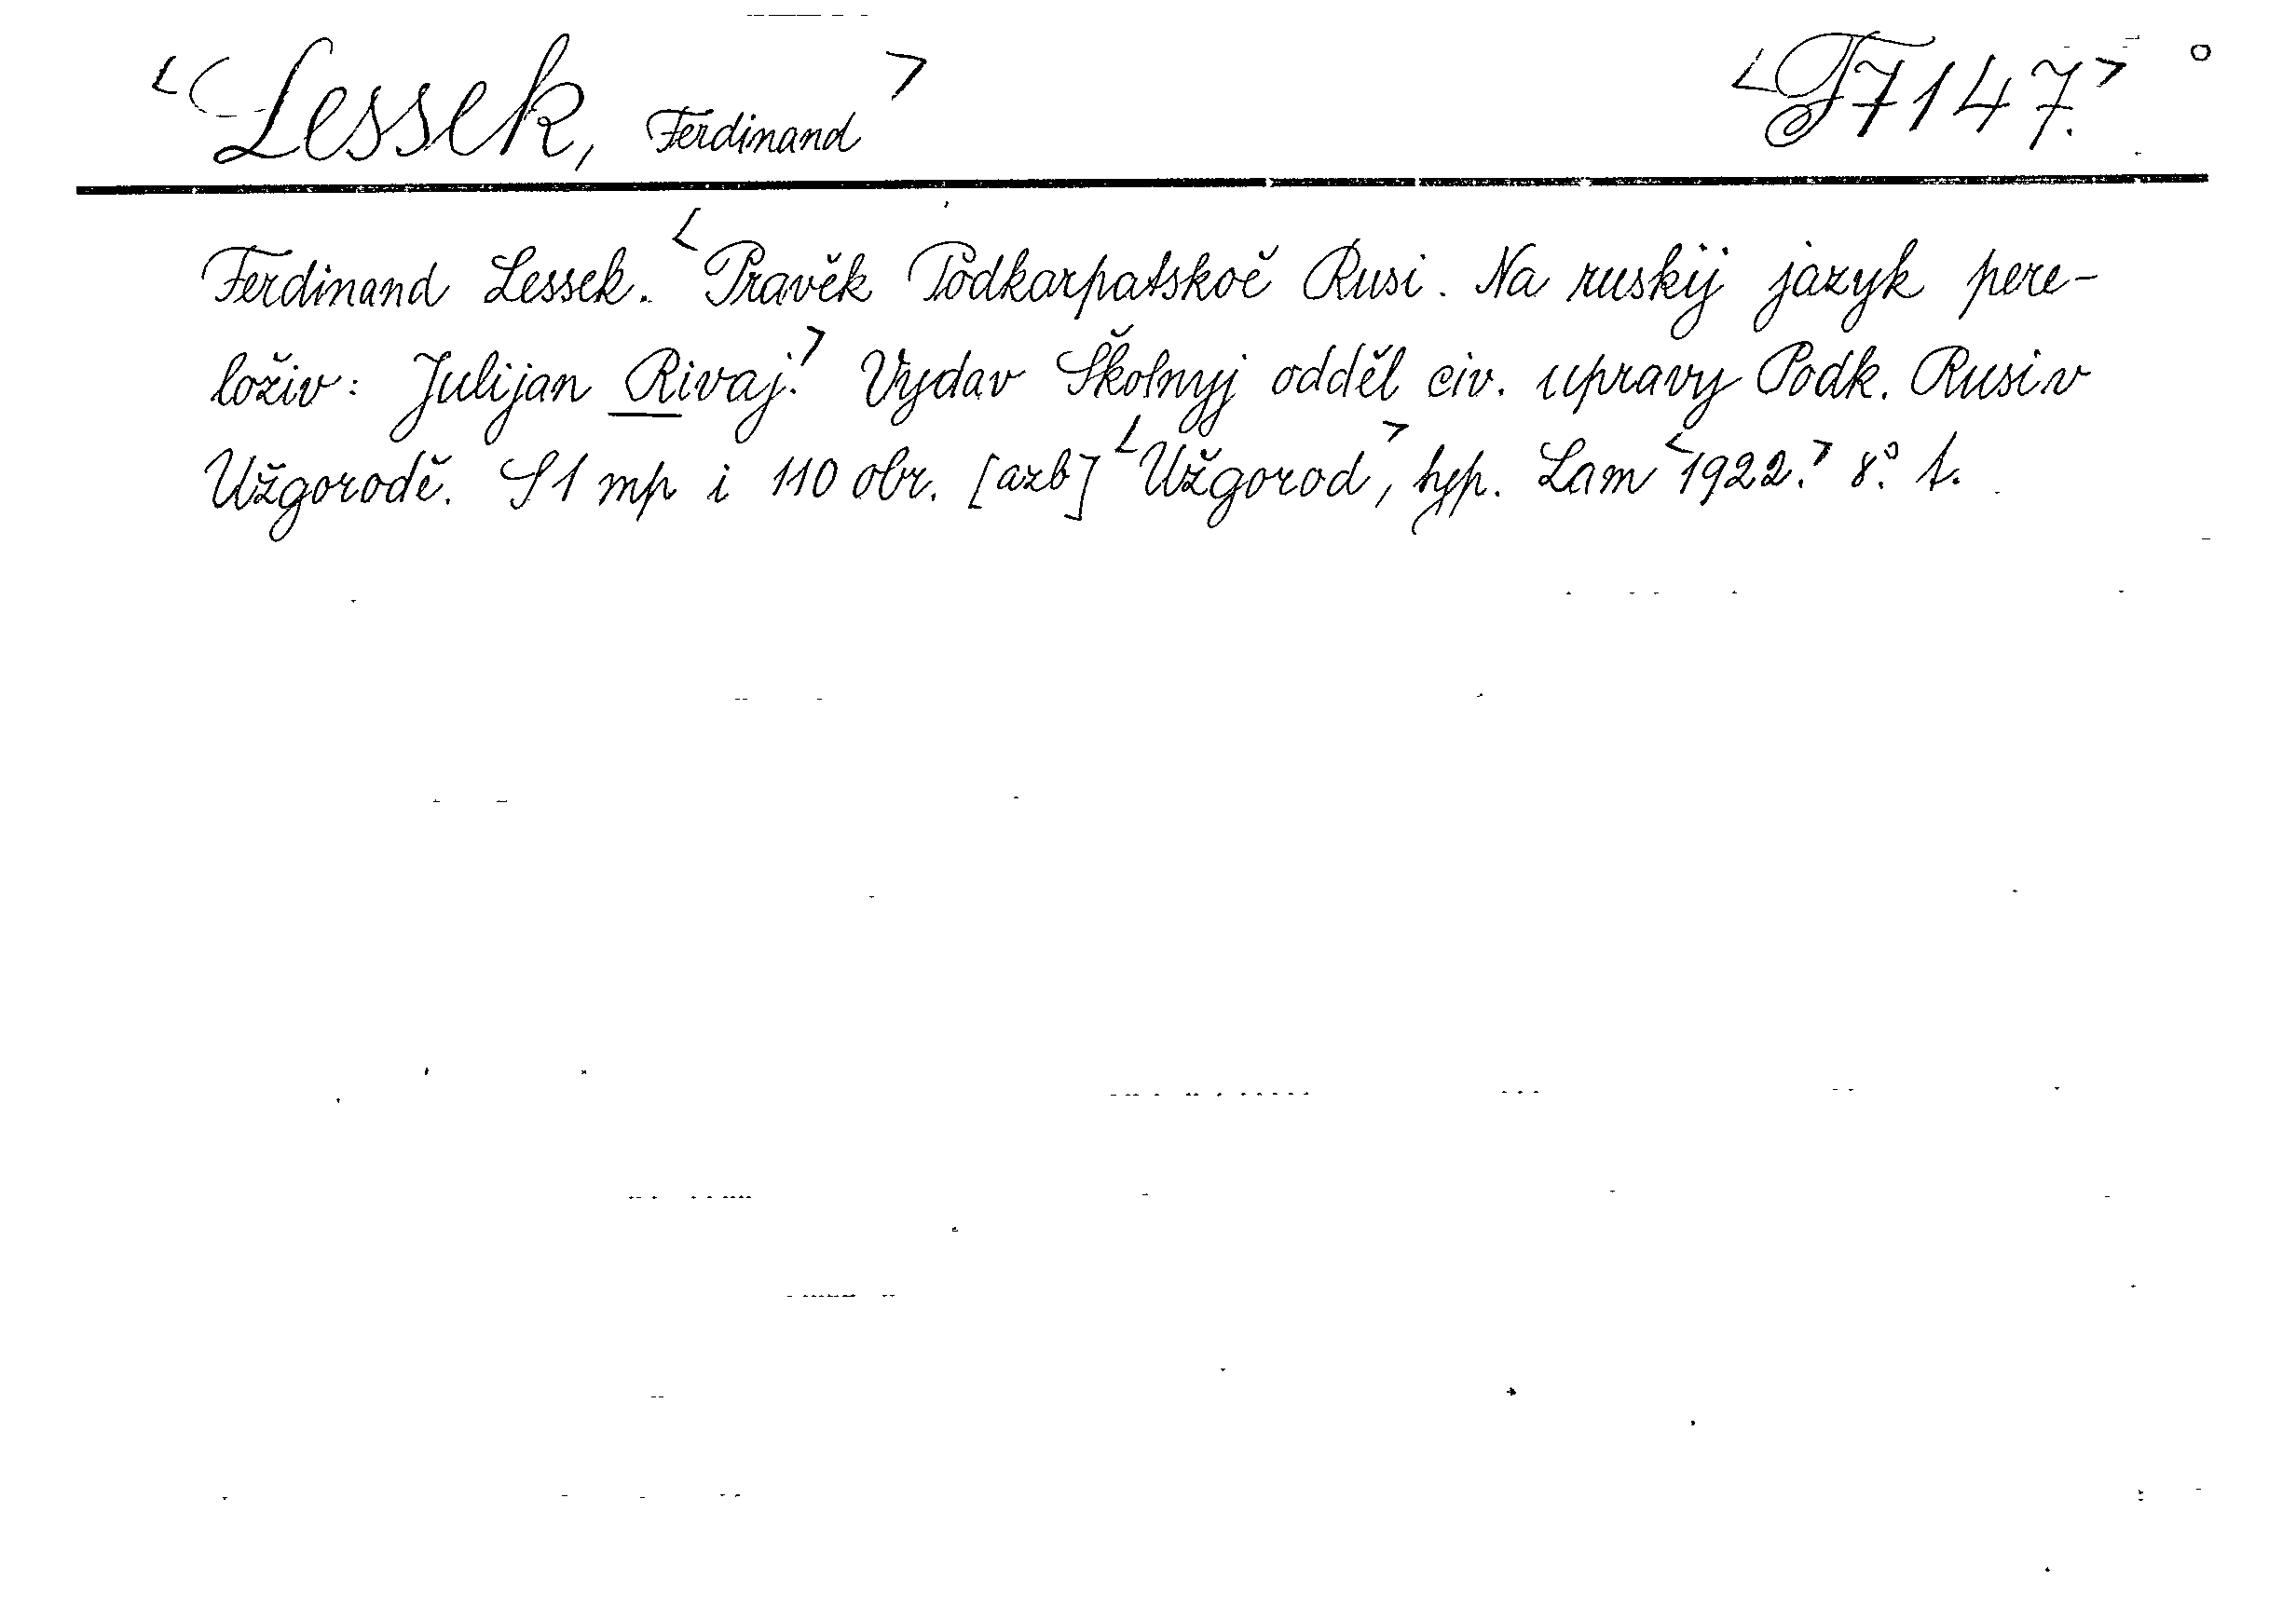 <Lessek, Ferdinand>
<T7147.>
Ferdinand Lessek. <Pravěk Podkarpatskoě Rusi. Na ruskij jazyk pere-
loživ: Julijan Rivaj.> Vydav Školnyj odděl civ. upravy Podk. Rusi v
Užgorodě. S 1 mp i 110 obr. [azb] <Užgorod>, hyp. Lam <1922.> 8.° t.